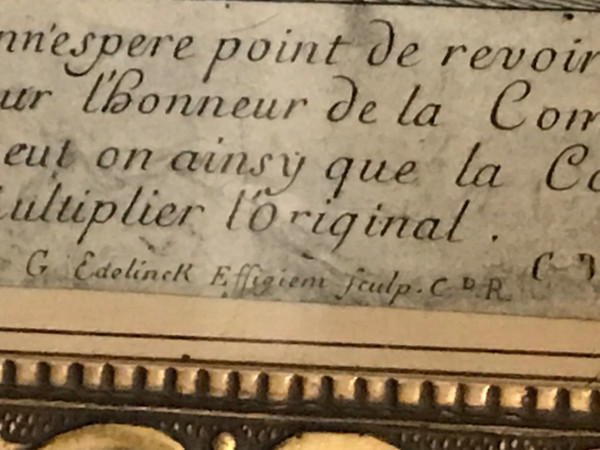 nn'espere point de revoir
ur l'honneur de la Com
eut on ainsy que la Co
ultiplier l'original.
G Edelinck Effigiem sculp. C D R